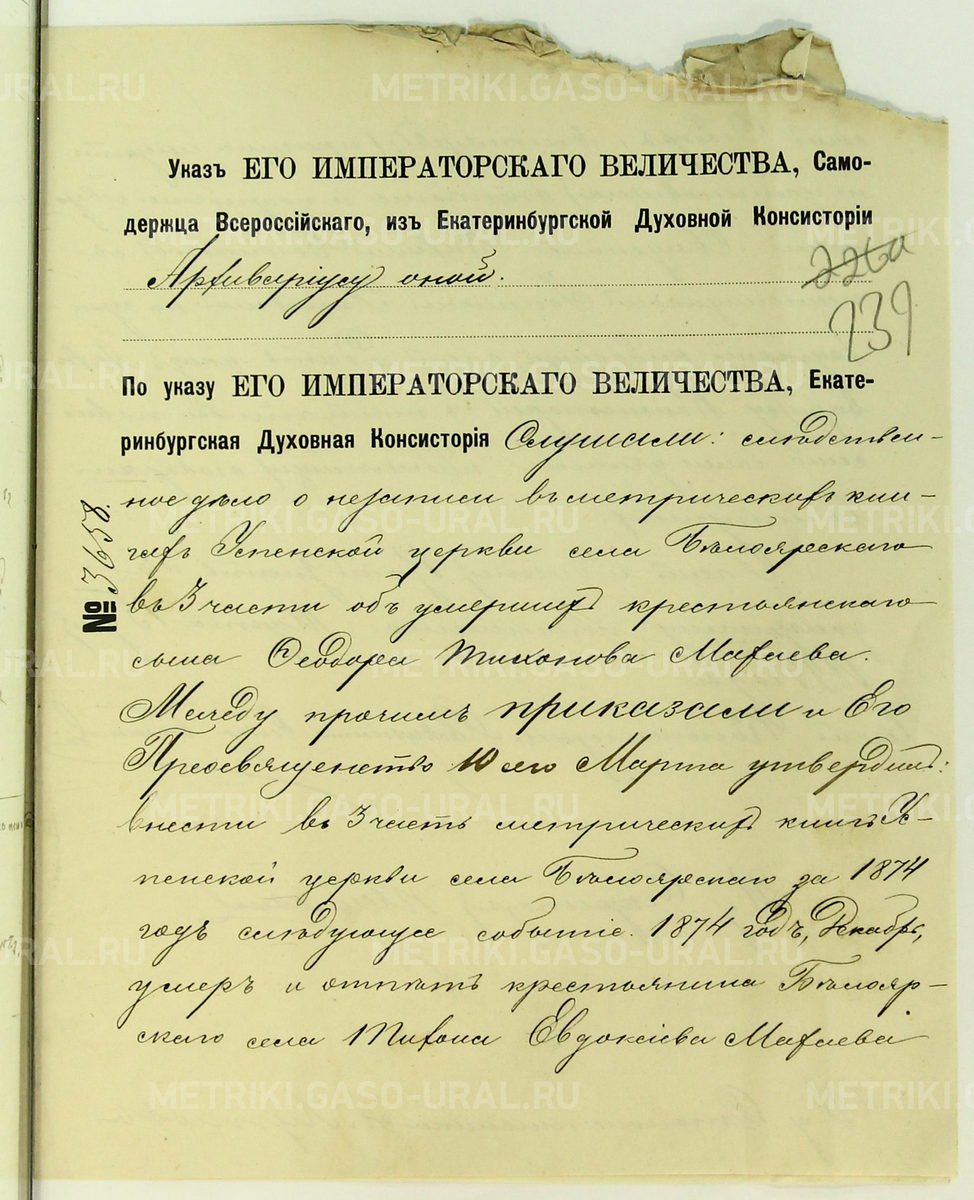 Указъ ЕГО ИМПЕРАТОРСКАГО ВЕЛИЧЕСТВА, Само-
держца Всероссійскаго, изъ Екатеринбургской Духовной Консисторіи
Архиваріусу оной.
226а
239
По указу ЕГО ИМПЕРАТОРСКАГО ВЕЛИЧЕСТВА, Екате-
ринбургская Духовная Консисторія Слушали: слѣдствен-
ное дѣло о незаписи въ метрическихъ кни-
гахъ Успенской церкви села Бѣлоярскаго
въ 3 части объ умершихъ крестьянскаго
сына Ѳеодора Тихонова Махаева.
Между прочимъ приказали и Его
Преосвященство 10 сего Марта утвердилъ:
внести въ 3 часть метрическихъ книгъ Ус-
пенской церкви села Бѣлоярскаго за 1874
годъ слѣдующее событіе. 1874 годъ, Декабрь,
умеръ и отпѣтъ крестьянина Бѣлояр-
скаго села Тихона Евдокіева Махаева
№ 3658.
METRIKI.GASO-URAL.RU